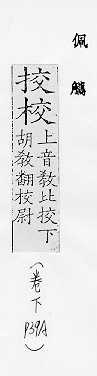 佩觿
挍校
上音教比挍下
胡教翻校尉
(卷下
P39A)